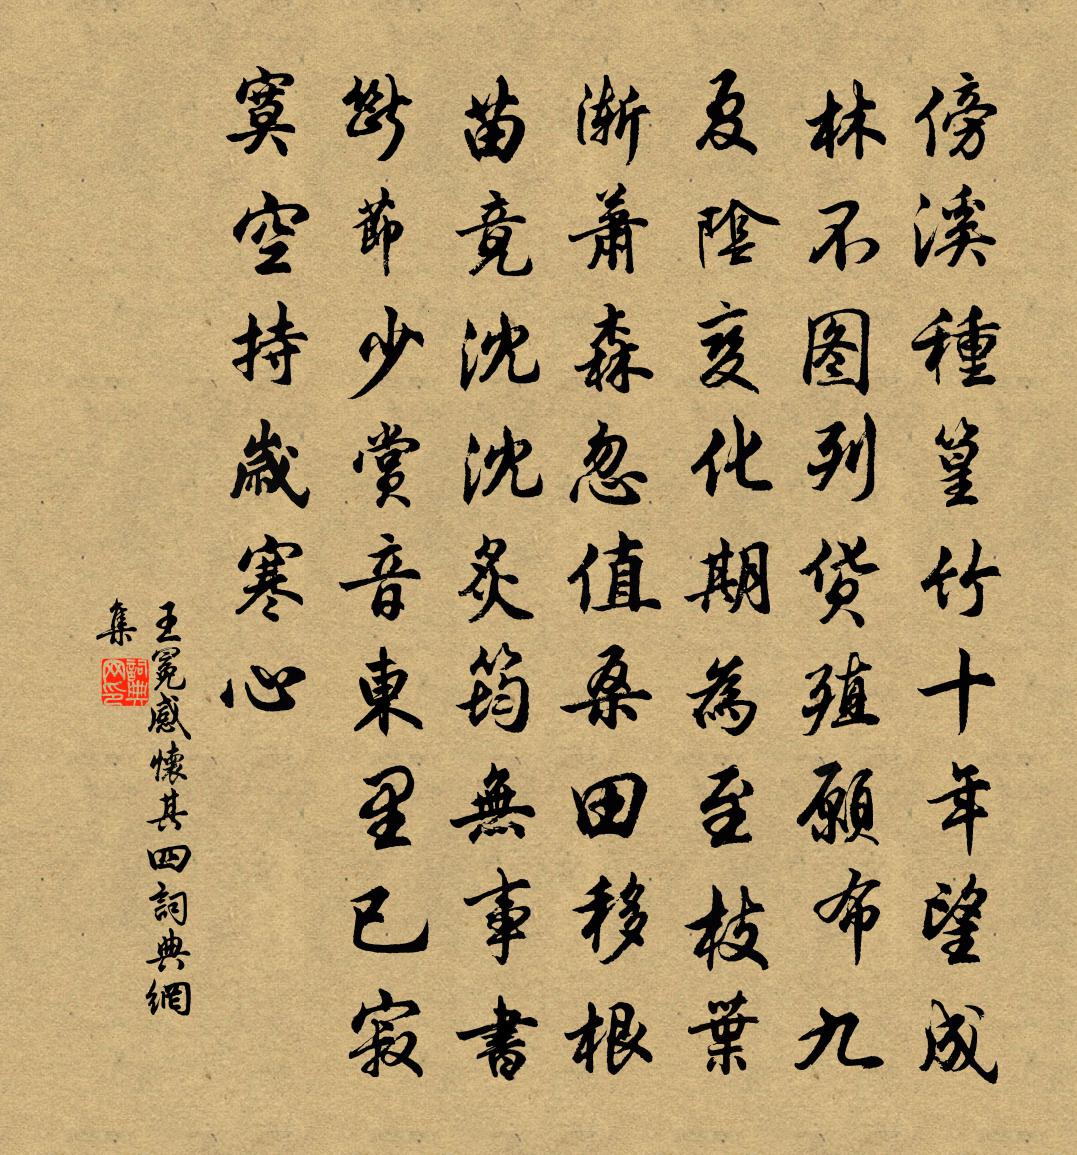 傍溪種篁竹十年望成
林不图列货殖願布九
夏陰变化期為至枝葉
漸蕭森忽值桑田移根
苗竟沈沈炙筠無事書
断節少賞音東里已寂
寞空持歲寒心
王冕感懷其四詞典網
集
詞典网印